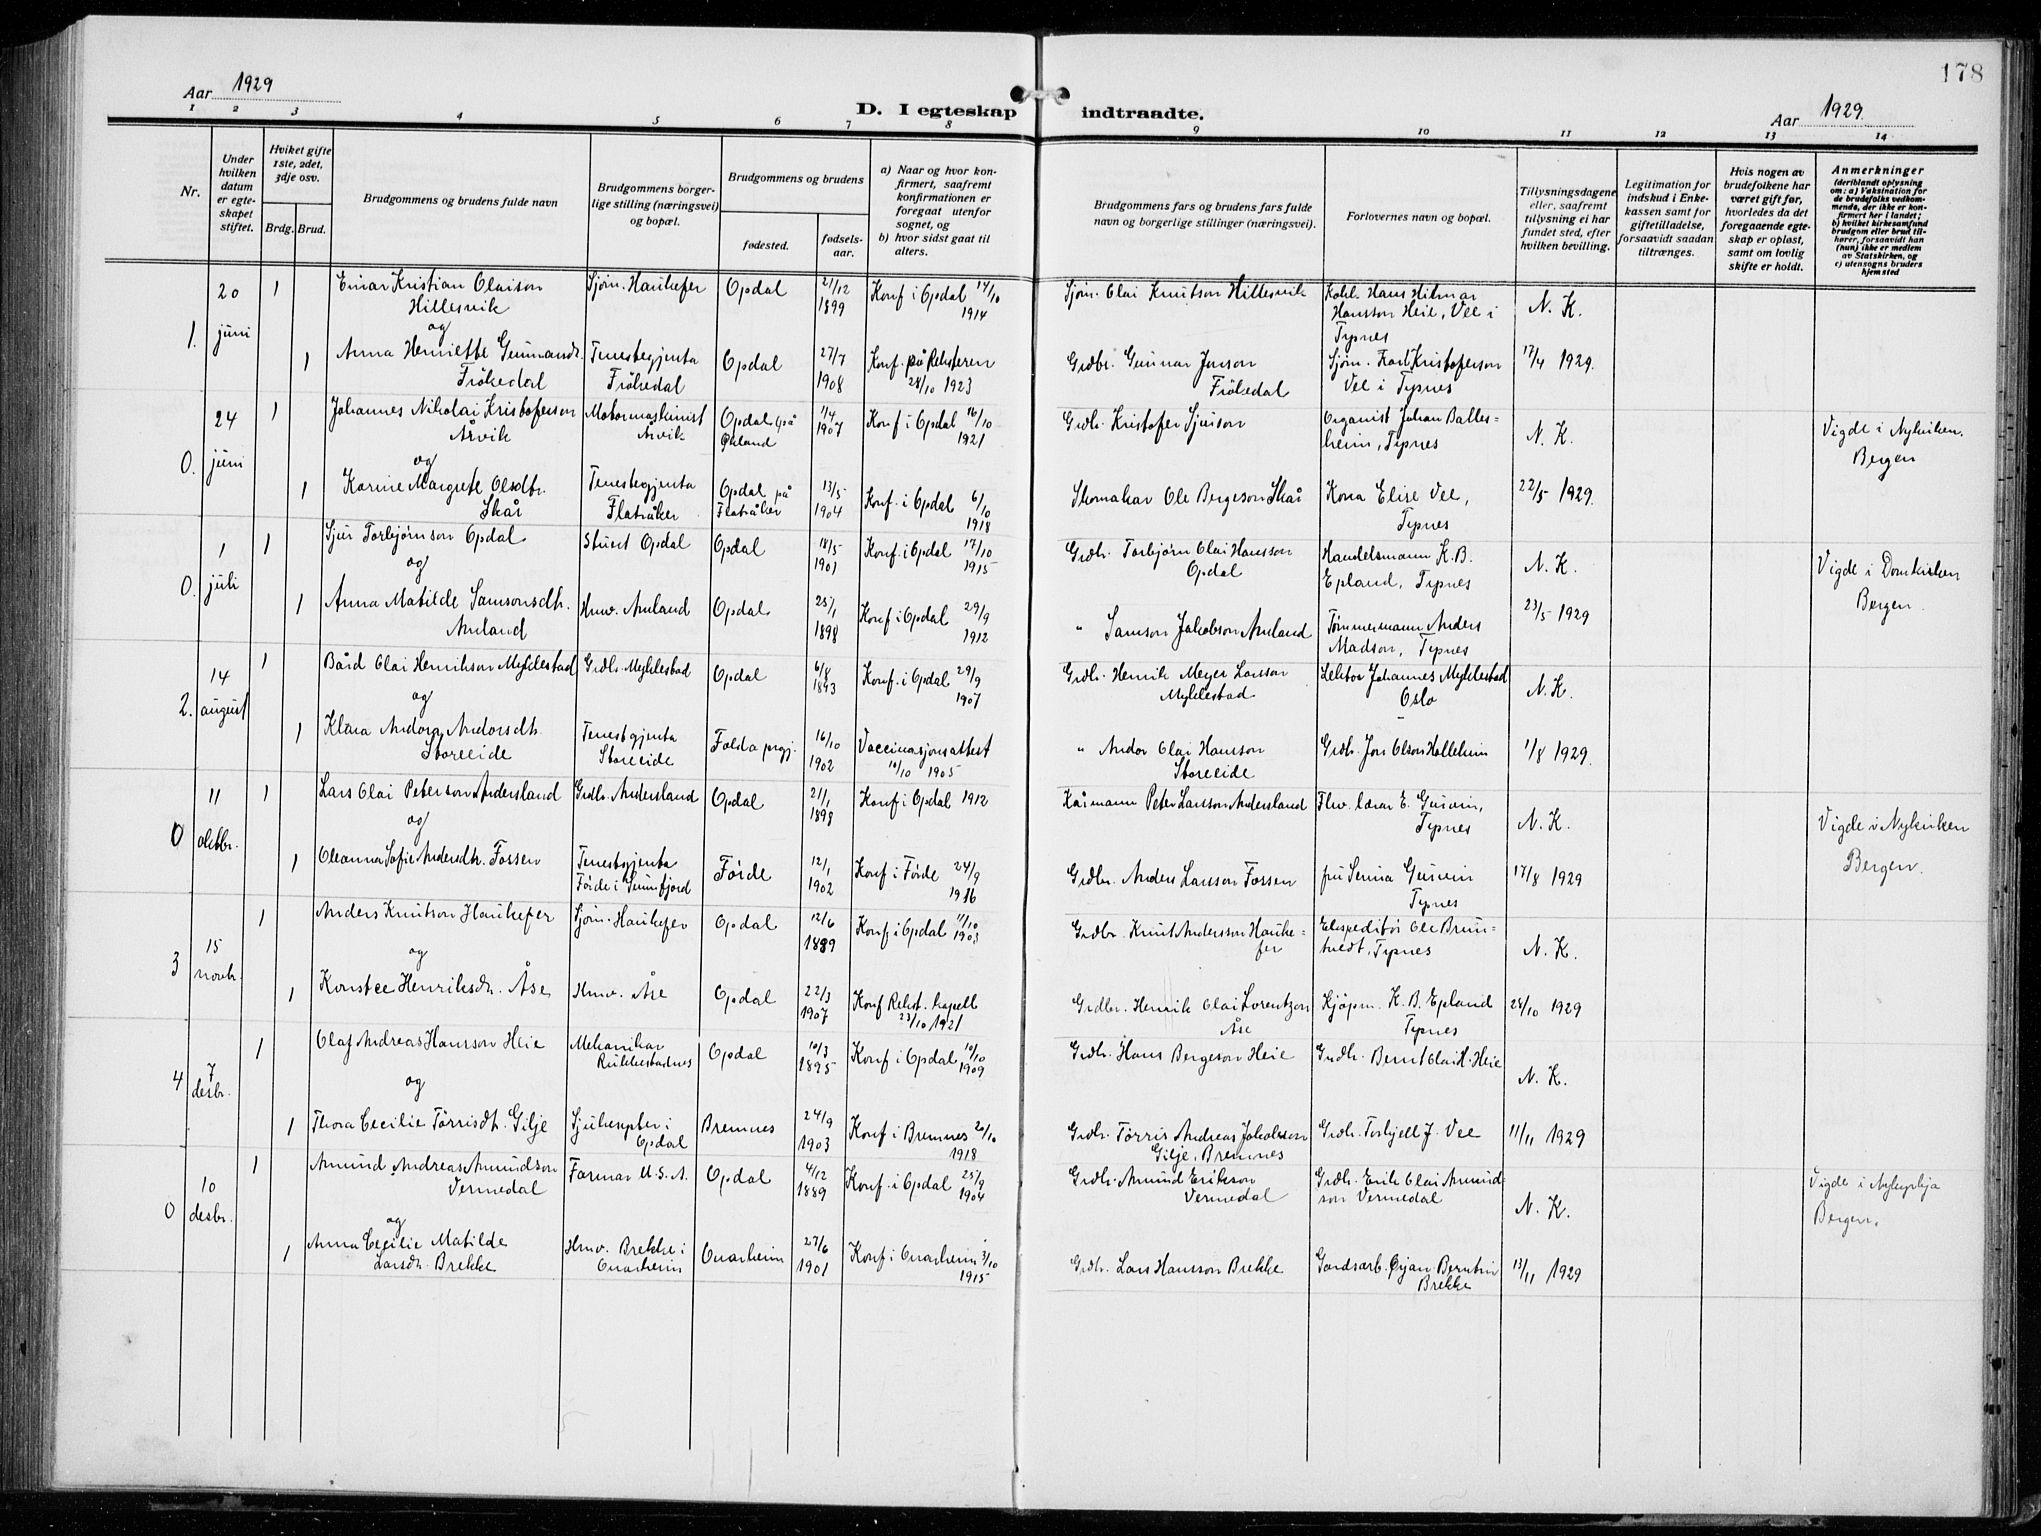 178
Aar 1929
D. I egteskap indtraadte.
Aar 1929.
1 2 3 4 5 6 7 8 9 10 11 12 13 14
Nr.
Under hvilken datum er egteskapet stiftet.
Hviket gifte 1ste, 2det, 3dje osv.
Brdg. Brud.
Brudgommens og brudens fulde navn
Brudgommens borgerlige stilling (næringsvei) og bopæl.
Brudgommens og brudens
fødested.
fødselsaar.
a) Naar og hvor konfirmert, saafremt konfirmationen er foregaat utenfor sognet, og
b) hvor sidst gaat til alters.
Brudgommens fars og brudens fars fulde navn og borgerlige stillinger (næringsvei).
Forlovernes navn og bopæl.
Tillysningsdagene eller, saafremt tillysning ei har fundet sted, efter hvilken bevilling.
Legitimation for indskud i Enkekassen samt for giftetilladelse, forsaavidt saadan tiltrænges.
Hvis nogen av brudefolkene har været gift før, hvorledes da det foregaaende egteskap er opløst, samt om lovlig skifte er holdt.
Anmerkninger
(deriblandt oplysning om: a) Vaksination for de brudefolks vedkommende, der ikke er konfirmert her i landet; b) hvilket kirkesamfund brudgom eller brud tilhører, forsaavidt han (hun) ikke er medlem av Statskirken, og c) utensogns bruders hjemsted
1. 20 juni 1 Einar Kristian Olaison Hillesvik Sjøm. Haukefer Opdal 21/12 1899 Konf i Opdal 14/10 1914 Sjøm. Olai Knutson Hillesvik Hans Hilmar Hansson Heie, Vee i Typnes N. K.
og
1 Anna Henriette Gunnarsdt. Frökedal Tenestegjenta Frökedal Opdal 27/7 1908 Konf. på Reksteren 28/10 1923 Grdbr. Gunnar Jonson Frökedal Sjøm. Karl Kristoferson Vee i Typnes 17/4 1929.
0. 24 juni 1 Johannes Nikolai Kristoferson Årvik Motormaskinist Årvik Opdal på Økland 1/4 1907 Konf i Opdal 16/10 1921 Grdbr. Kristofer Sjurson Organist Johan Ballesheim, Typnes N. K. Vigde i Nykirken. Bergen
og
1 Karine Margrete Olsdtr. Skår Tenestegjenta Flatråker Opdal på Flatråker 13/5 1904 Konf. i Opdal 6/10 1918 Skomakar Ole Bergeson Skår Kona Elise Vee, Typnes 22/5 1929.
0. 1 juli 1 Sjur Torbjørnson Opdal Stuert Opdal Opdal 18/5 1901 Konf. i Opdal 17/10 1915 Grdbr. Torbjørn Olai Hansson Opdal Handelsmann K. B. Epland, Typnes N. K. Vigde i Domkirken Bergen.
og
1 Anna Matilde Samsonsdtr. Amland Hmv. Amland Opdal 25/1 1898 Konf i Opdal 29/9 1912 " Samson Jakobson Amland Tømmermann Anders Madson, Typnes 23/5 1929
2. 14 august 1 Bård Olai Henrikson Myklestad Grdbr. Myklestad Opdal 6/8 1893 Konf. i Opdal 29/9 1907 Grdbr. Henrik Meyer Larsson Myklestad Lektor Johannes Myklestad Oslo N. K.
og
1 Klara Andora Andorsdtr. Storeeide Tenestgjenta Storeeide Folda prgj. 16/10 1902 Vaccinasjonsattest 10/10 1905 " Andor Olai Hansson Storeeide Grdbr. Jon Olson Halleheim 1/8 1929.
0 11 oktbr. 1 Lars Olai Peterson Andersland Grdbr. Andersland Opdal 21/1 1898 Konf i Opdal 1912 Kårmann Peter Larsson Andersland Fhv. lærar E. Gusvin, Typnes N. K. Vigde i Nykirken Bergen.
og
1 Oleanna Sofie Andersdtr. Fossen Tenestgjenta Førde i Sunnfjord Førde 12/1 1902 Konf i Førde 24/9 1916 Grdbr. Anders Larsson Fossen fru Serina Gusvin Typnes 17/8 1929
3 15 novb. 1 Anders Knutson Haukefer Sjøm. Haukefer Opdal 12/6 1889 Konf i Opdal 11/10 1903 Grdbr. Knut Andersson Haukefer Ekspeditør Ole Bruntvedt, Typnes N. K.
og
1 Konstee Henriksdtr. Åse Hmv. Åse Opdal 22/3 1907 Konf Rekst. kapell 23/10 1921 Grdbr. Henrik Olai Lorentzon Åse Kjøpm. K. B. Epland Typnes 28/10 1929
4 7 desbr. 1 Olaf Andreas Hansson Heie Mekanikar Rukkestadnes Opdal 10/3 1895 Konf i Opdal 10/10 1909 Grdbr. Hans Bergeson Heie Grdbr. Bernt Olai H. Heie N. K.
og
1 Thora Cecilie Tørrisdtr. Gilje Sjukesyster i Opdal Bremnes 24/9 1903 Konf i Bremnes 20/10 1918 Grdbr. Tørris Andreas Jakobsson Gilje, Bremnes Grdbr. Torkjell J. Vee 11/11 1929
0 10 desbr. 1 Amund Andreas Amundson Vermedal Farmar U.S.A. Opdal 4/12 1889 Konf. i Opdal 25/9 1904 Grdbr. Amund Erikson Vermedal Grdbr. Erik Olai Amundson Vermedal N. K. Vigde i Nykyrkja Bergen.
og
1 Anna Cecilie Matilde Larsdtr. Brekke Hmv. Brekke i Kvarheim 27/6 1901 Konf i 3/10 1915 Grdbr. Lars Hansson Brekke Gardsarb. Ørjan Berntsen Brekke 13/11 1929